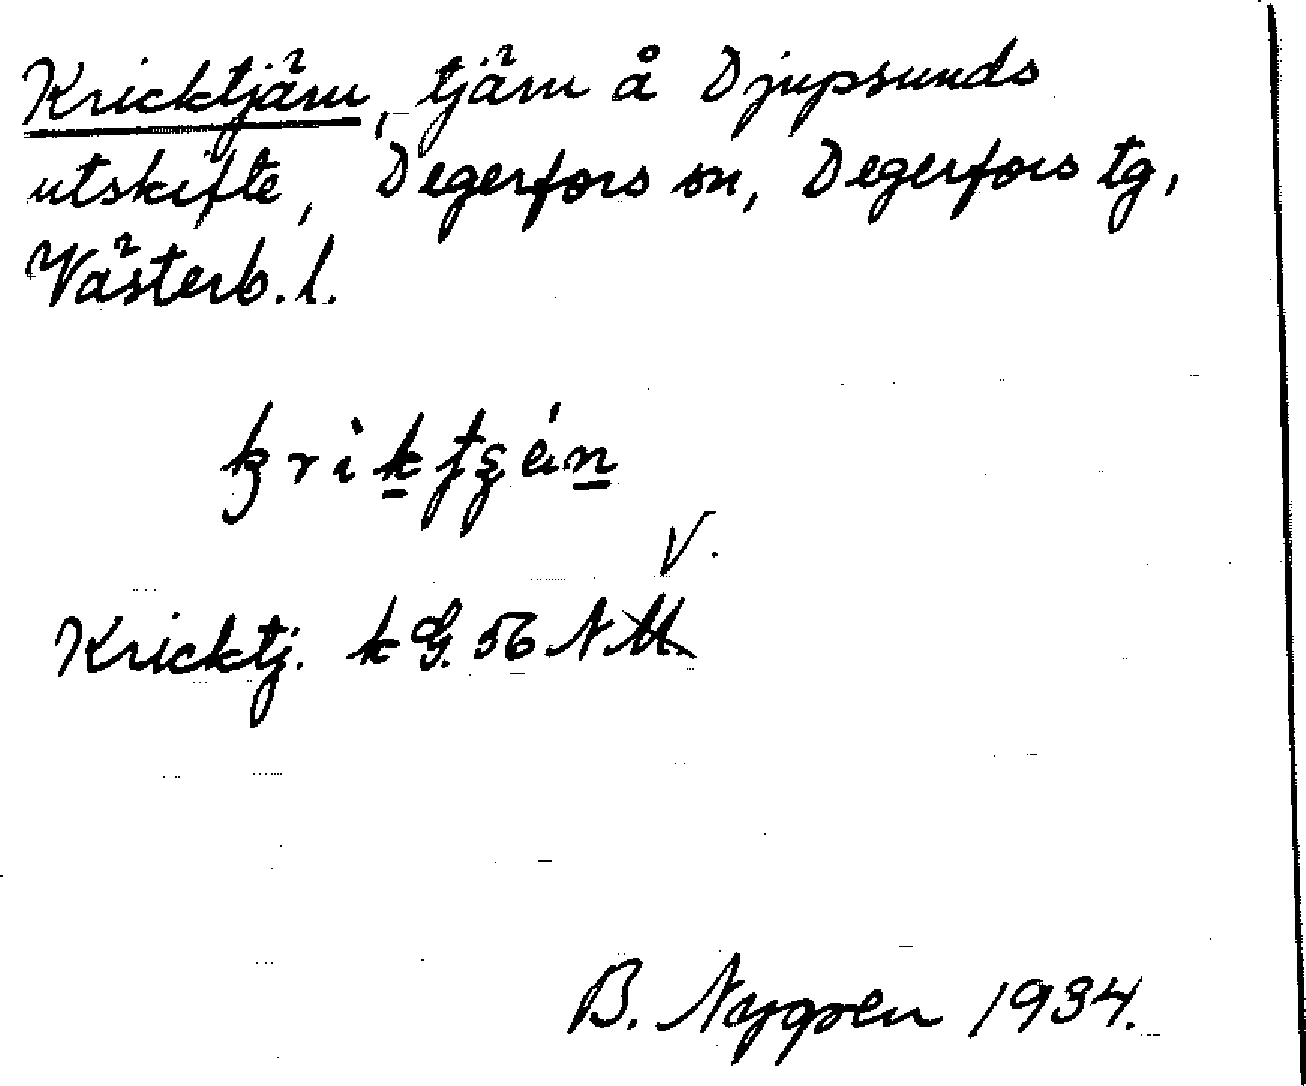 Kricktjärn, tjärn å Djupsunds
utskifte, Degerfors sn, Degerfors tg,
Västerb. l.
V.
Kricktj. k G. 56 N
B. Nygren 1934.